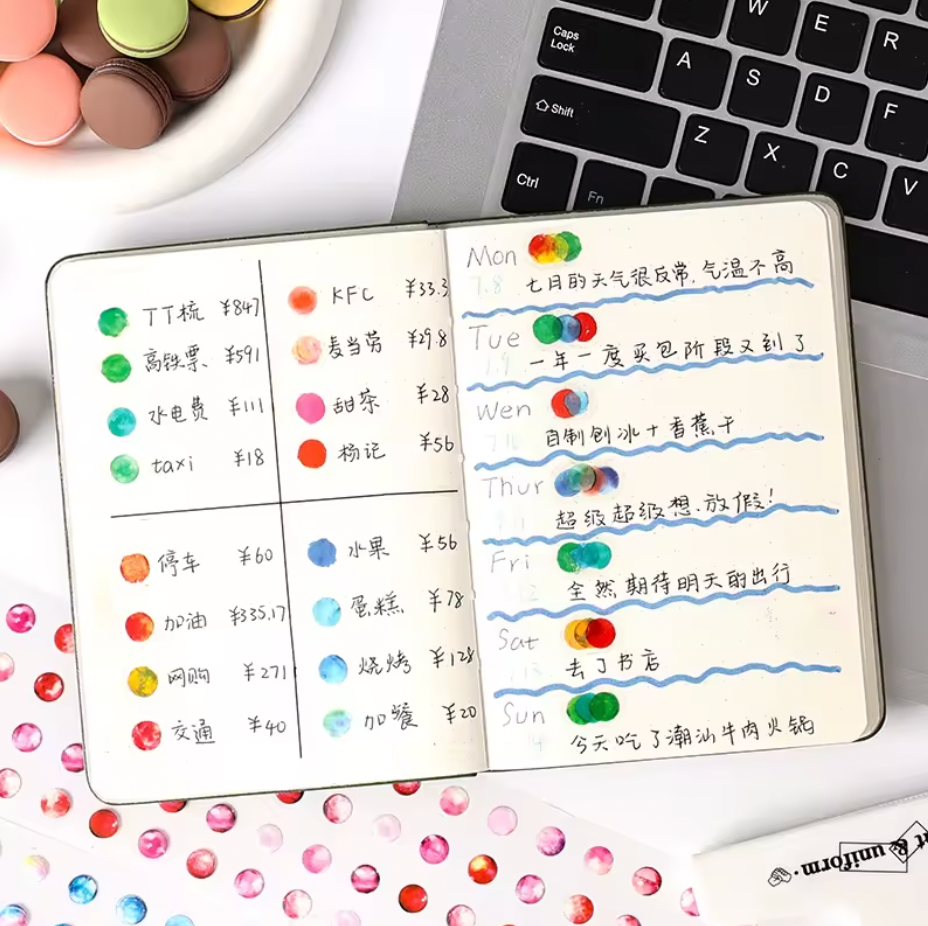 W
E
R
Caps Lock
A
S
D
F
Shift
Z
X
C
V
Ctrl
Fn
TT梳 ¥847
高铁票 ¥591
水电费 ¥111
taxi ¥18
KFC ¥33.3
麦当劳 ¥29.8
甜茶 ¥28
杨记 ¥56
停车 ¥60
加油 ¥335.17
网购 ¥271
交通 ¥40
水果 ¥56
蛋糕 ¥78
烧烤 ¥128
加餐 ¥20
Mon
7.8 七月的天气很反常,气温不高
Tue
7.9 一年一度买包阶段又到了
Wen
自制刨冰+香蕉干
Thur
超级超级想放假!
Fri
12 全然期待明天的出行
Sat
13 去了书店
Sun
14 今天吃了潮汕牛肉火锅
& uniform.